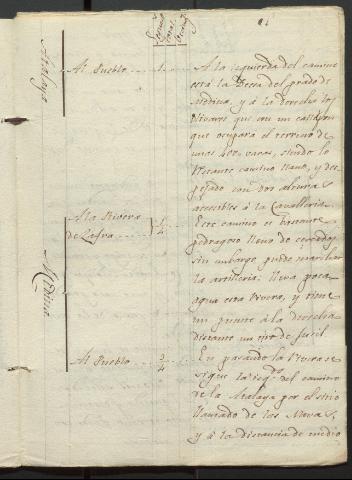 Atalaya
Al Pueblo 1
A la izquierda del camino
está la Deesa del prado de
Medina, y á la derecha los
Olivares que con un callejon
que ocupara el terreno de
unas 400 varas, siendo lo
restante camino llano, y des-
pejado con dos alturas
accesibles á la Cavalleria.
A la Rivera
de Zafra 1/4
Este camino es bastante
pedragoso lleno de cercados
sin embargo puede marchar
la artilleria: lleva poca
agua esta Rivera, y tiene
un puente á la derecha
distante un tiro de fusil
Medina
Al Pueblo 3/4
En pasando la Rivera se
sigue la izqda. del camino
de la Atalaya por el sitio
llamado de los
y á la distancia de medio